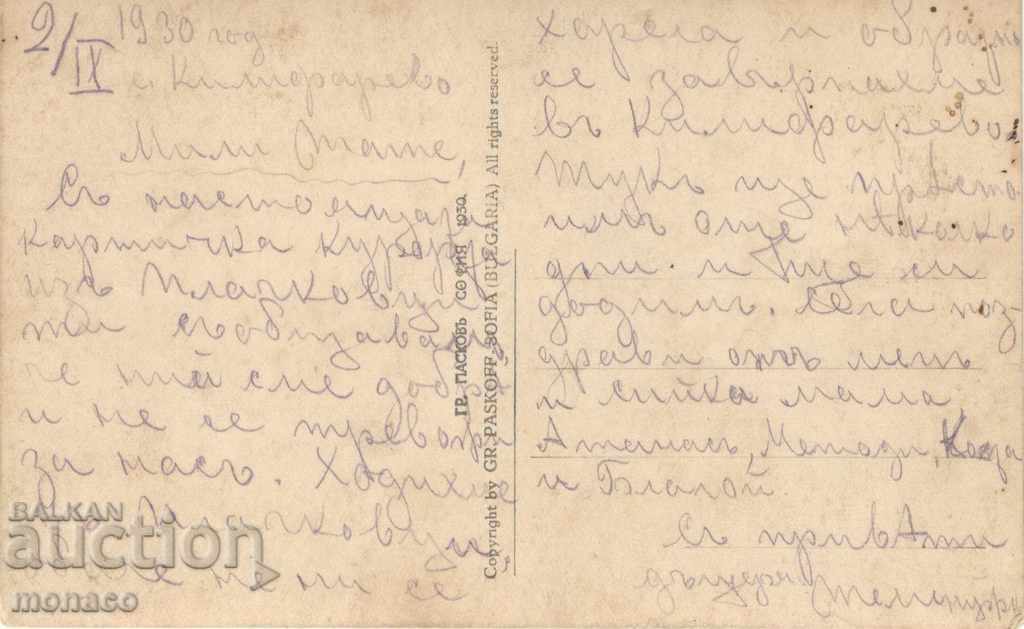 2/IX 1930 год.
с. Килифарево
Мили Тате,
Съ настоящата
картичка
изъ Плачковци
ти съобщавамъ
че ний сме добре
и не се тревожи
за насъ. Ходихме
Плачковци
не ни се
хареса и обратно
се завърнахме
въ Килифарево.
Тукъ ще престо
имъ още нѣколко
дни и ще си
додимъ. Сега поз-
драви отъ менъ
и сички мама,
Атанасъ, Методи,
и Благой.
Съ привѣти
дъщеря
ГР. ПАСКОВЪ СОФИЯ 1930.
Copyright by GR. PASKOFF, SOFIA (BULGARIA) All rights reserved.
BALKAN
auction
monaco